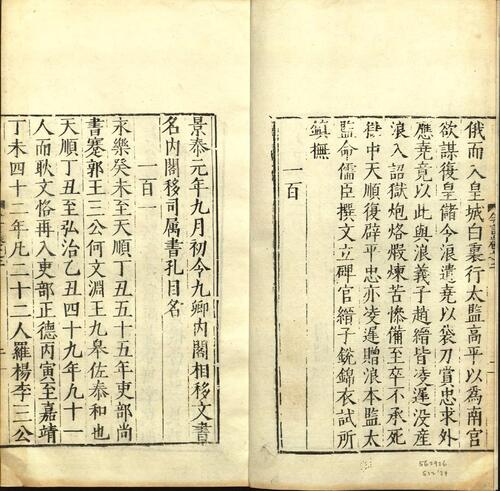 俄而入皇城白裏行太監高平以為南官
欲謀復皇儲今浪遣堯以袋刀賞忠求外
應堯竟以此與浪義子趙縉皆凌遲没産
浪入詔獄炮烙煅煉苦慘備至卒不承死
獄中天順復辟平忠亦凌遲贈浪本監太
監命儒臣撰文立碑官縉子銃錦衣試所
鎮撫
一百
景泰元年九月初令九卿内閣相移文書
名内閣移司属書孔目名
一百
永樂癸未至天順丁丑五十五年吏部尚
書蹇郭王三公何文淵王九皋佐泰和也
天順丁丑至弘治乙丑四十九年九十一
人而耿文恪再入吏部正德丙寅至嘉靖
丁未四十二年凡二十二人羅楊李三公
562926